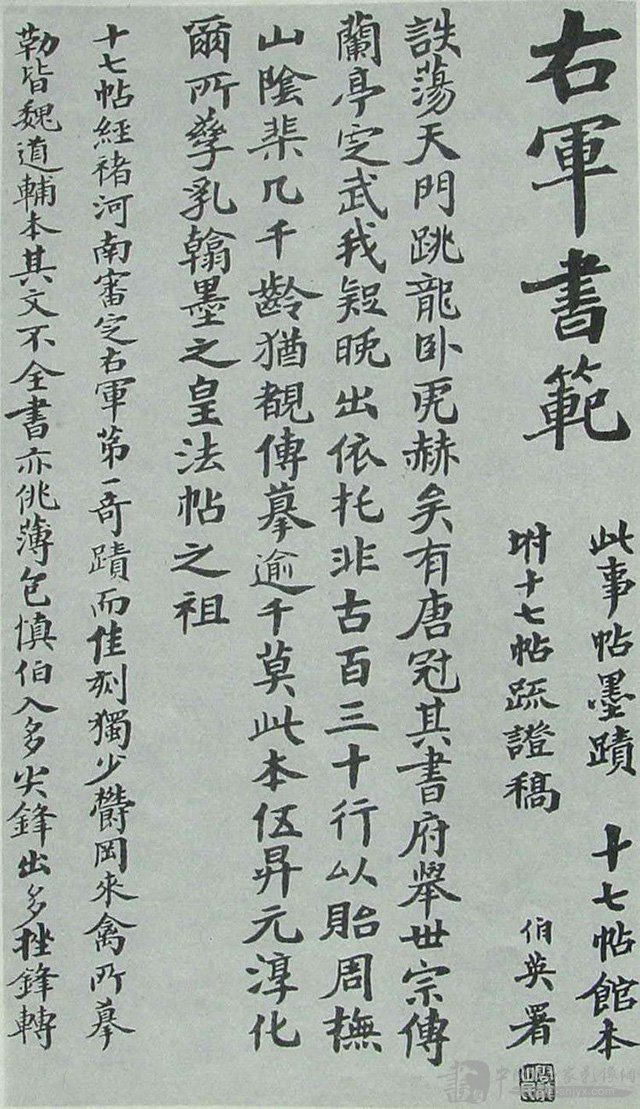 右軍書範
此事帖墨蹟　十七帖館本
坿十七帖疏證稿　伯英署
詄蕩天門跳龍臥虎赫矣有唐冠其書府舉世宗傳
蘭亭定武我疑晚出依托非古百三十行以貽周撫
山陰棐几千齡猶覩傳摹逾千莫此本伍昇元淳化
爾所孳乳翰墨之皇法帖之祖
十七帖經褚河南審定右軍第一奇蹟而佳刻獨少鬱岡來禽所摹
勒皆魏道輔本其文不全書亦佻薄包慎伯入多尖鋒出多挫鋒轉